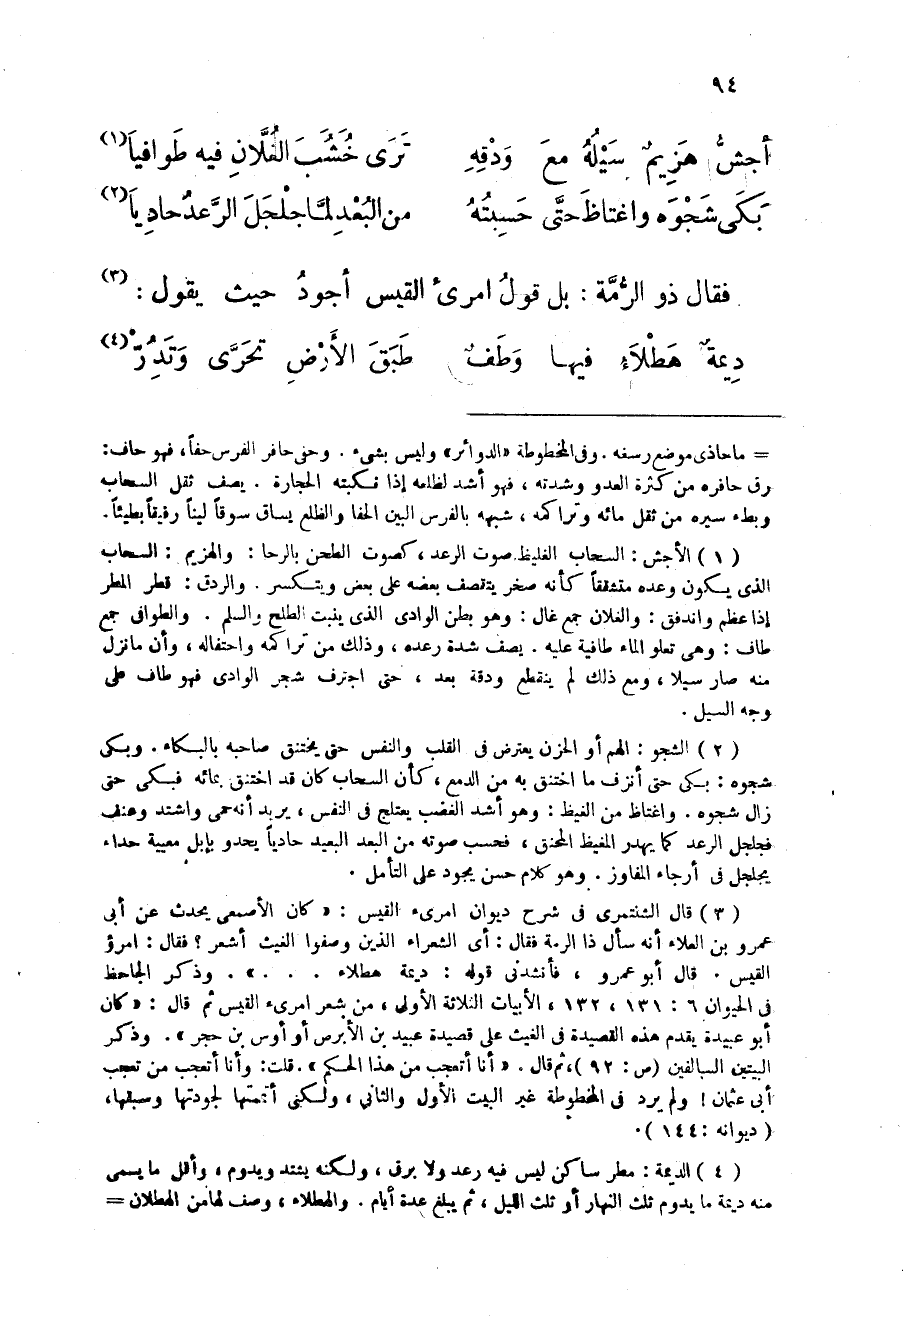 ٩٤
أجشُّ هَزِيمٌ سَيْلُهُ مَعَ وَدْقِهِ تَرَى خُشُبَ الغُلَّانِ فيه طَوافياَ (١)
بَكَى شَجْوَه واغتاظَ حتَّى حَسِبتُهُ من البُعْدِ لمَّا جلْجَلَ الرَّعدُ حادِياَ (٢)
فقال ذو الرُّمَّة : بل قولُ امرئ القيس أجودُ حيث يقول : (٣)
دِيمةٌ هَطْلَاَء فيها وَطَفٌ طَبَقَ الأَرْضِ تَحَرَّى وَتَدُرّْ (٤)
= ما حاذى موضع رسغه . وفى المخطوطة «الدوائر» وليس بشىء . وحفى حافر الفرس حفاً ، فهو حاف :
رق حافره من كثرة العدو وشدته ، فهو أشد لظلعه إذا نكبته الحجارة . يصف ثقل السحاب
وبطء سيره من ثقل مائه وتراكمه ، شبهه بالفرس البين الحفا والظلع يساق سوقاً ليناً رفيقاً بطيئاً .
( ١ ) الأجش : السحاب الغليظ صوت الرعد ، كصوت الطحن بالرحا : والهزيم : السحاب
الذى يكون رعده متشققاً كأنه صخر يتقصف بعضه على بعض ويتكسر . والردق : قطر المطر
إذا عظم واندفق : والغلان جمع غال : وهو بطن الوادى الذى ينبت الطلح والسلم . والطوافى جمع
طاف : وهى تعلو الماء طافية عليه . يصف شدة رعده ، وذلك من تراكمه واحتفاله ، وأن ما نزل
منه صار سيلا ، ومع ذلك لم ينقطع ودقة بعد ، حتى اجترف شجر الوادى فهو طاف على
وجه السيل .
( ٢ ) الشجو : الهم أو الحزن يعترض فى القلب والنفس حتى يختنق صاحبه بالبكاء . وبكى
شجوه : بكى حتى أنزف ما اختنق به من الدمع ، كأن السحاب كان قد اختنق بمائه فبكى حتى
زال شجوه . واغتاظ من الغيظ : وهو أشد الغضب يعتلج فى النفس ، يريد أنه حمى واشتد وعنف
فجلجل الرعد كما يهدر المغيظ المحنق ، فحسب صوته من البعد البعيد حادياً يحدو بإبل معيية حداء
يجلجل فى أرجاء المفاوز . وهو كلام حسن يجود على التأمل .
( ٣ ) قال الشنتمرى فى شرح ديوان امرىء القيس : « كان الأصمعى يحدث عن أبى
عمرو بن العلاء أنه سأل ذا الرمة فقال : أى الشعراء الذين وصفوا الغيث أشعر ؟ فقال : امرؤ
القيس . قال أبو عمرو ، فأنشدنى قوله : ديمة هطلاء . . . » . وذكر الجاحظ
فى الحيوان ٦ : ١٣١ ، ١٣٢ ، الأبيات الثلاثة الأولى ، من شعر امرىء القيس ثم قال : « كان
أبو عبيدة يقدم هذه القصيدة فى الغيث على قصيدة عبيد بن الأبرص أو أوس بن حجر » . وذكر
البيتين السالفين (ص : ٩٢ )، ثم قال . « أنا أتعجب من هذا الحكم » . قلت : وأنا أتعجب من تعجب
أبى عثمان ! ولم يرد فى المخطوطة غير البيت الأول والثانى ، ولكنى أتممتها لجودتها وسبقها ،
( ديوانه : ١٤٤ ) .
( ٤ ) الديمة : مطر ساكن ليس فيه رعد ولا برق ، ولكنه يشتد ويدوم ، وأقل ما يسمى
منه ديمة ما يدوم ثلث النهار أو ثلث الليل ، ثم يبلغ عدة أيام . والهطلاء ، وصف لها من الهطلان =